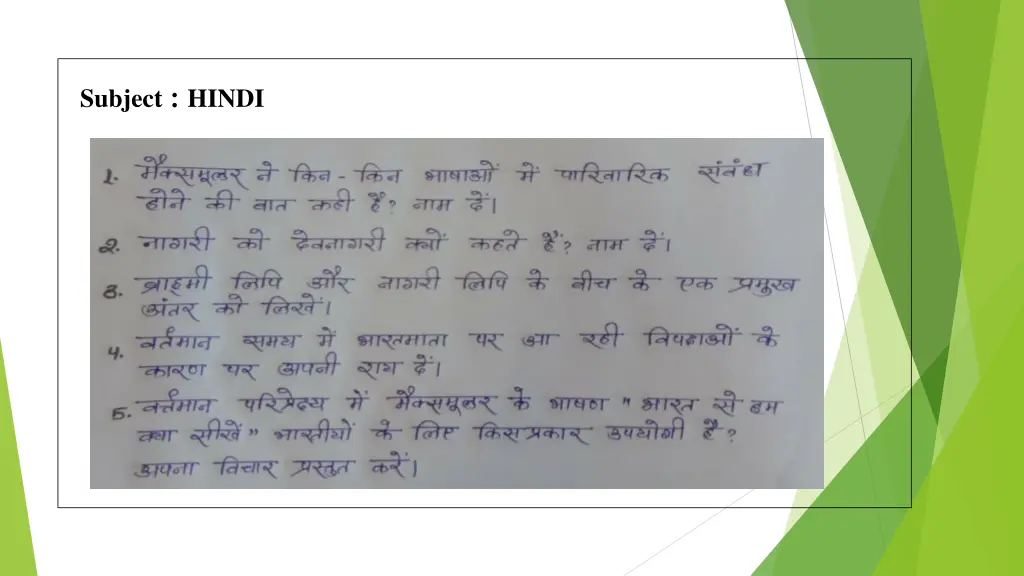 Subject : HINDI
1. मैक्समूलर ने किन - किन भाषाओं में पारिवारिक संबंध
होने की बात कही है? नाम दें।
2. नागरी को देवनागरी क्यों कहते हैं? नाम दें।
3. ब्राह्मी लिपि और नागरी लिपि के बीच के एक प्रमुख
अंतर को लिखें।
4. वर्तमान समय में भारतमाता पर आ रही विपदाओं के
कारण पर अपनी राय दें।
5. वर्त्तमान परिप्रेक्ष्य में मैक्समूलर के भाषण " भारत से हम
क्या सीखें" भारतीयों के लिए किसप्रकार उपयोगी है?
अपना विचार प्रस्तुत करें।